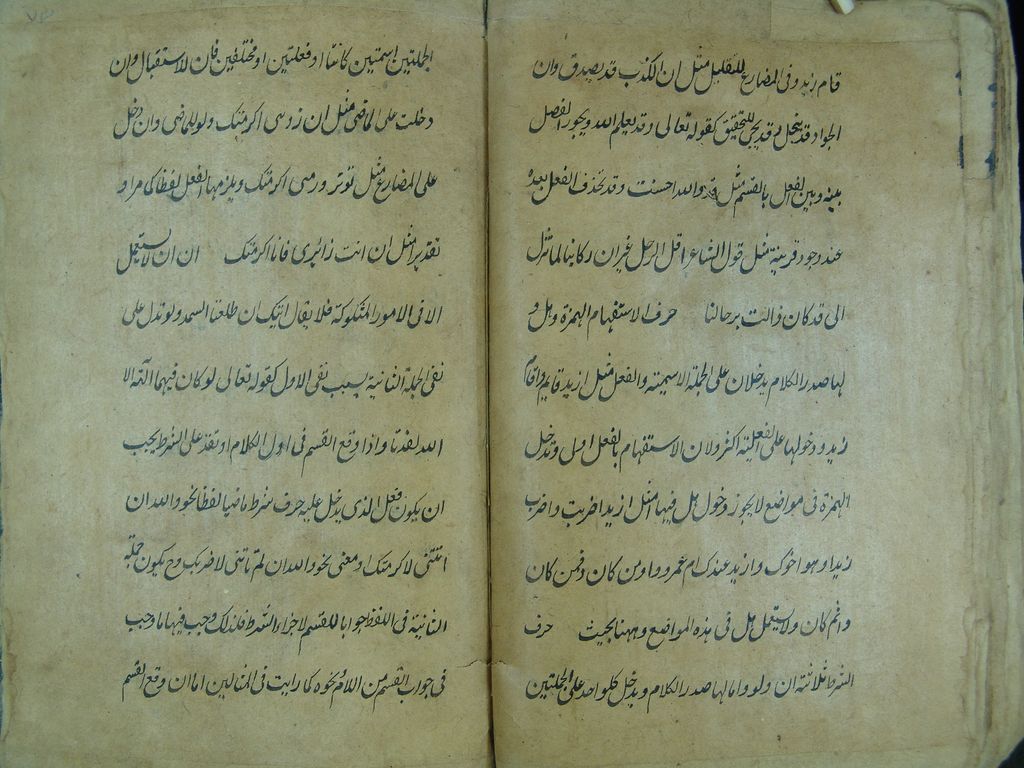 قام زيد وفى المضارع للتقليل مثل ان الكذوب قد يصدق وان
الجواد قد يبخل وقد يجئ للتحقيق كقوله تعالى وقد يعلم الله ويجوز الفصل
بينه وبين الفعل بالقسم مثل قد والله احسنت وقد يحذف الفعل بعده
عند وجود قرينة مثل قول الشاعر افل الرحل غير ان ركابنا لما تزل
الى قد كان زالت برحالنا حرف الاستفهام الهمزة وهل و
لها صدر الكلام يدخلان على الجملة الاسمية والفعل مثل ازيد قايم واقام
زيد ودخولها على الفعلية اكثر ولان الاستفهام بالفعل اولى وتدخل
الهمزة فى مواضع لا يجوز دخول هل فيها مثل ازيدا ضربت واضرب
زيدا وهو اخوك وازيد عندك ام عمرو واومن كان وفمن كان
واثم كان ولا يستعمل هل فى هذه المواضع وههنا بحيث حرف
الشرط ثلاثة ان ولو واما لها صدر الكلام ويدخل كلواحد على الجملتين
الجملتين اسميتين كانتا او فعلتين او مختلفين فان للاستقبال وان
دخلت على الماضى مثل ان زرتنى اكرمتك ولو للماضى وان دخل
على المضارع مثل لو تزورنى اكرمتك ويلزمها الفعل لفظا كما مر او
تقديرا مثل ان انت زائرى فانا اكرمتك ان ان لا يستعمل
الا فى الامور المشكوكة فلا يقال اتيك ان طلعت الشمس ولو تدل على
نفى الجملة الثانية بسبب نفى الاول كقوله تعالى لو كان فيهما آلهة الا
الله لفسدتا واذا وقع القسم فى اول الكلام وتقدم على الشرط يجب
ان يكون فعل الذى يدخل عليه حرف شرط ماضيا لفظا نحو والله ان
اتيتنى لاكرمتك او معنى نحو والله ان لم تاتنى لاضربك وح يكون جملة
الثانية فى اللفظ جوابا للقسم لا جزاء الشرط فلذلك وجب فيها ما وجب
فى جواب القسم من اللام ونحوه كما رايت فى المثالين اما ان وقع القسم